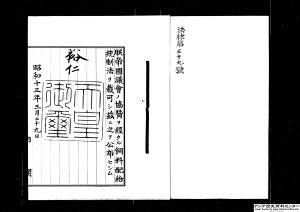 法律第三十九號
朕帝國議會ノ協贊ヲ經タル飼料配給
統制法ヲ裁可シ茲ニ之ヲ公布セシム
裕仁
天皇
御璽
昭和十三年三月二十九日
アジア歴史資料センター